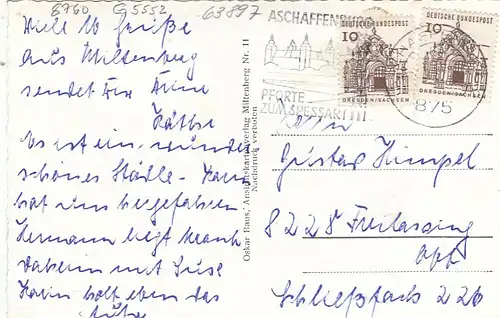 8760 G5552 63897
Viele 10 Grüße
aus Miltenberg
sendet Eve
Käthe
Es ist ein wunder
schönes Städtle. Karin
hat uns hergefahren
Hermann liegt krank
daheim mit Suse
Karin holt eben das
Oskar Haus, Ansichtskartenverlag Miltenberg Nr. 11
Nachdruck verboten
ASCHAFFENBURG
PFORTE
ZUM SPESSART
875
DEUTSCHE BUNDESPOST
10
DRESDEN/SACHSEN
DEUTSCHE BUNDESPOST
10
DRESDEN/SACHSEN
Gustav Himpel
8228 Freilassing
Obb
Schließfach 226